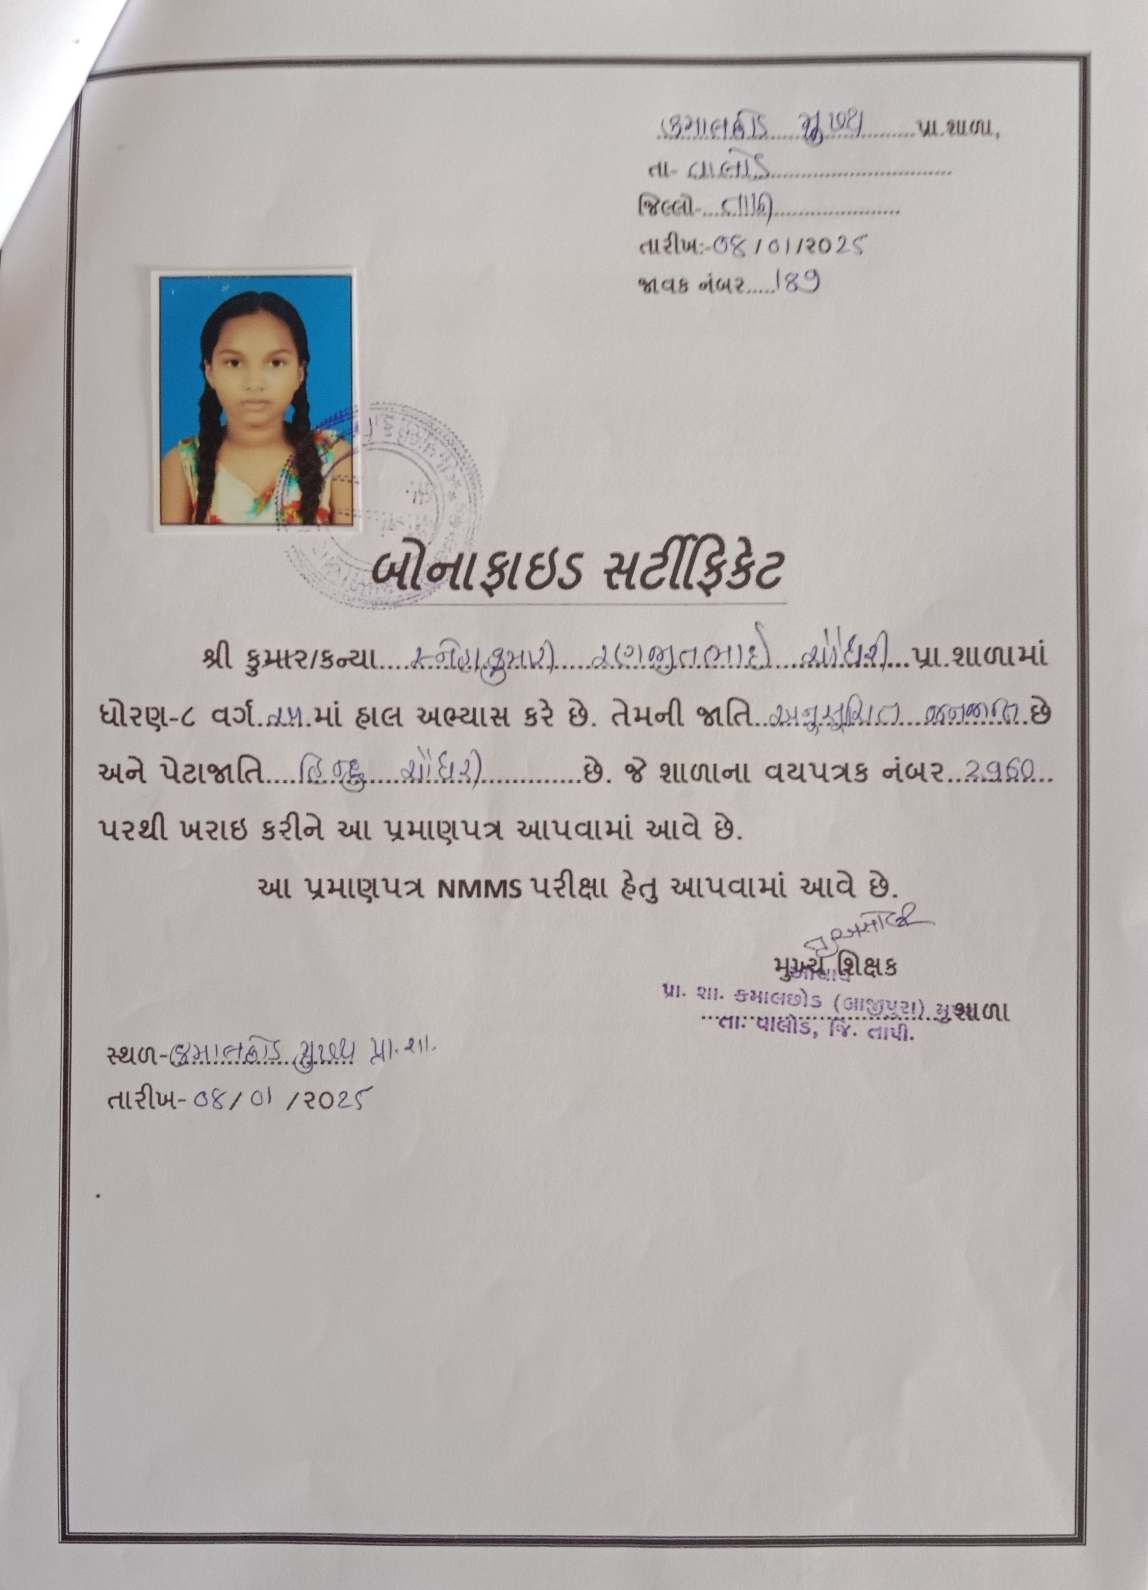 કમાલછોડ મુખ્ય પ્રા.શાળા,
તા- વાલોડ
જિલ્લો- તાપી
તારીખ:-08/01/2025
જાવક નંબર.....189
બોનાફાઇડ સર્ટીફિકેટ
શ્રી કુમાર/કન્યા સ્નેહાકુમારી રણજીતભાઈ ચૌધરી પ્રા.શાળામાં
ધોરણ-૮ વર્ગ માં હાલ અભ્યાસ કરે છે. તેમની જાતિ અનુસુચિત જનજાતિ છે
અને પેટાજાતિ હિન્દુ ચૌધરી છે. જે શાળાના વયપત્રક નંબર 2960
પરથી ખરાઇ કરીને આ પ્રમાણપત્ર આપવામાં આવે છે.
આ પ્રમાણપત્ર NMMS પરીક્ષા હેતુ આપવામાં આવે છે.
મુખ્ય શિક્ષક
આચાર્ય
પ્રા. શા. કમાલછોડ (બાજીપુરા) મુ શાળા
તા: વાલોડ, જિ. તાપી.
સ્થળ-કમાલછોડ મુખ્ય પ્રા. શા.
તારીખ-08/01/૨૦25